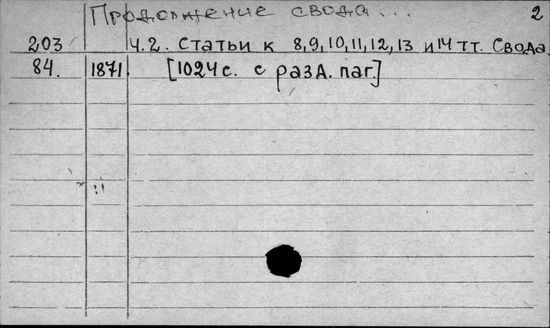 Продолжение свода... 2
203 Ч.2. Статьи к 8,9,10,11,12,13 и 14 тт. Свода.
84. 1871. [1024 с. с разд. паг.]